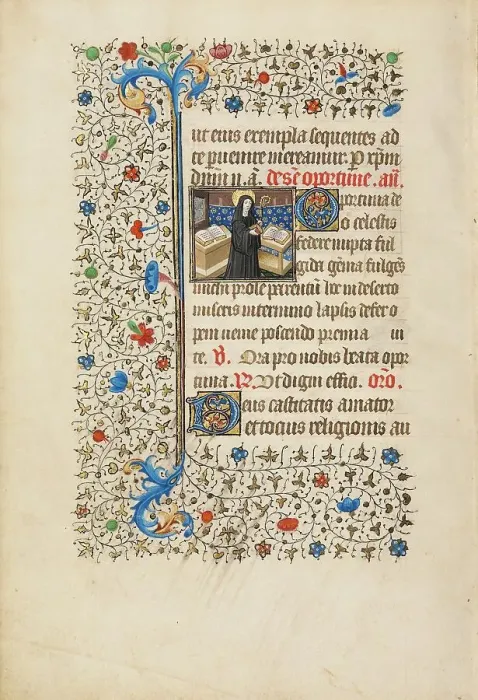 ut eius exempla sequentes ad
te puenire mereamur. P xpm
dnm n. a. de sce oportune. an.
Oportuna de
o celestis
federe nupta ful
gida gema fulges
prole in deserto
miseris lapsis defer o
pem poscendo premia
te. V. Ora pro nobis beata opor
tuna. R. Vt digni effic. oro.
Deus castitatis amator
et tocius religionis au